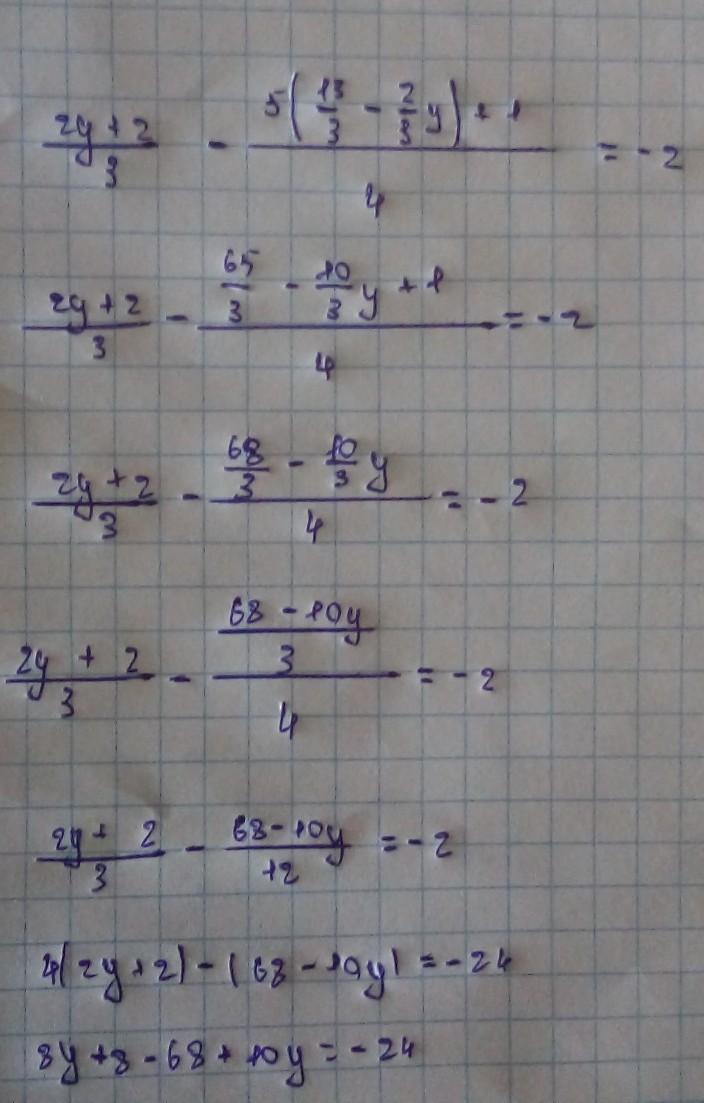 (2y + 2)/3 - (5(13/3 - 2/3 y) + 1)/4 = -2
(2y + 2)/3 - (65/3 - 10/3 y + 1)/4 = -2
(2y + 2)/3 - (68/3 - 10/3 y)/4 = -2
(2y + 2)/3 - ((68 - 10y)/3)/4 = -2
(2y + 2)/3 - (68 - 10y)/12 = -2
4(2y + 2) - (68 - 10y) = -24
8y + 8 - 68 + 10y = -24